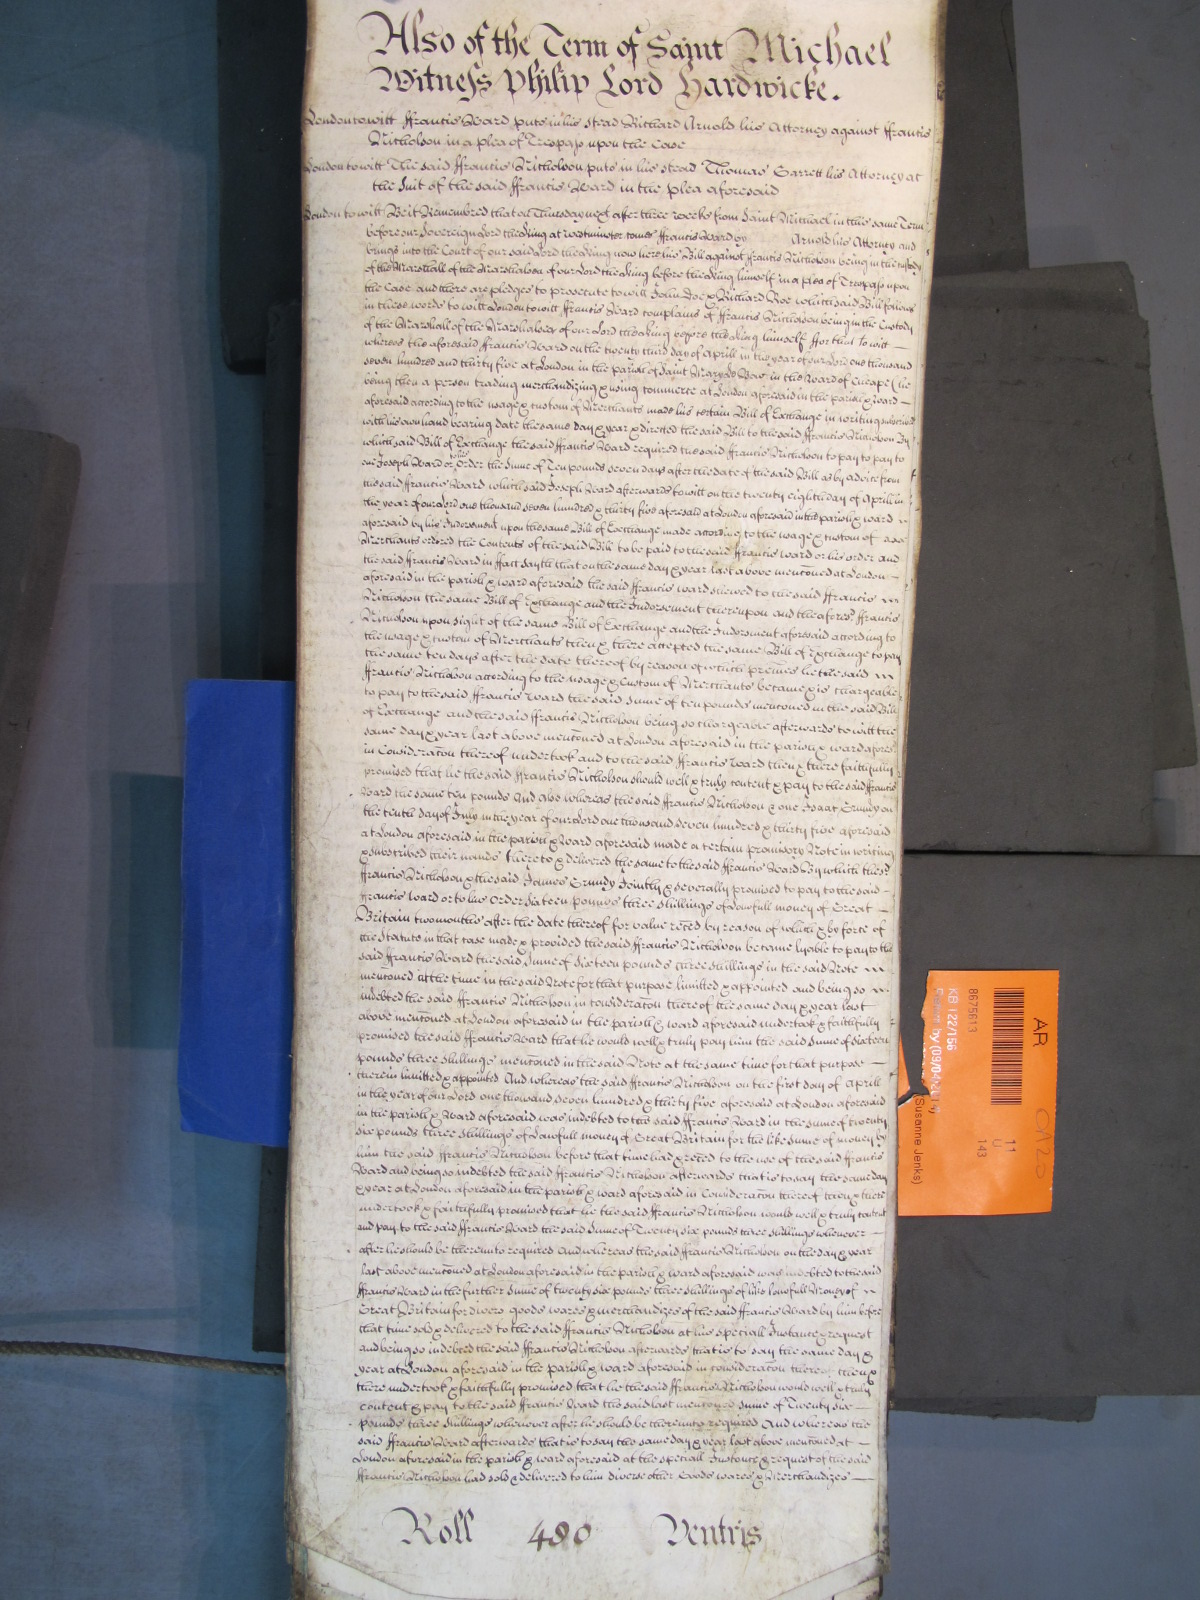 Also of the Term of Saint Michael
Witness Philip Lord Hardwicke.
London to witt ffrancis Ward puts in his stead Richard Arnold his Attorney against ffrancis
Nicholson in a plea of Trespass upon the Case
London to witt The said ffrancis Nicholson puts in his stead Thomas Garrett his Attorney at
the Suit of the said ffrancis Ward in the plea aforesaid
London to witt Be it Remembred that on Thursday next after three weeks from Saint Michael in this same Term
before our Sovereign Lord the King at Westminster comes ffrancis Ward by Arnold his Attorney and
brings into the Court of our said Lord the King now here his Bill against ffrancis Nicholson being in the custody
of the Marshall of the Marshalsea of our Lord the King before the King himself in a plea of Trespass upon
the Case and there are pledges to prosecute to witt John Doe & Richard Roe which said Bill follows
in these words to witt London to witt ffrancis Ward complains of ffrancis Nicholson being in the Custody
of the Marshall of the Marshalsea of our Lord the King before the King himself ffor that to witt
whereas the aforesaid ffrancis Ward on the twenty third day of Aprill in the year of our Lord one thousand
seven hundred and thirty five at London in the parish of Saint Mary le Bow in the Ward of Cheape (he
being then a person trading merchandizing & using commerce at London aforesaid in the parish & ward
aforesaid according to the usage & custom of Merchants made his certain Bill of Exchange in writing subscribed
with his own hand bearing date the same day & year & directed the said Bill to the said ffrancis Nicholson By
which said Bill of Exchange the said ffrancis Ward required the said ffrancis Nicholson to pay to pay to
one Joseph Ward or his Order the Sume of Ten pounds seven days after the date of the said Bill as by advice from
the said ffrancis Ward which said Joseph Ward afterwards to witt on the twenty eighth day of Aprill in
the year of our Lord one thousand seven hundred & thirty five aforesaid at London aforesaid in the parish & ward
aforesaid by his Indorsement upon the same Bill of Exchange made according to the usage & custom of
Merchants ordered the Contents of the said Bill to be paid to the said ffrancis Ward or his order and
the said ffrancis Ward in ffact sayth that on the same day & year last above menconed at London
aforesaid in the parish & ward aforesaid the said ffrancis Ward shewed to the said ffrancis
Nicholson the same Bill of Exchange and the Indorsement thereupon and the afores:d ffrancis
Nicholson upon sight of the same Bill of Exchange and the Indorsment aforesaid according to
the usage & custom of Merchants then & there accepted the same Bill of Exchange to pay
the same ten days after the date thereof by reason of which premes he the said
ffrancis Nicholson according to the usage & custom of Merchants became & is chargeable
to pay to the said ffrancis Ward the said sume of ten pounds menconed in the said Bill
of Exchange and the said ffrancis Nicholson being so chargeable afterwards to witt the
same day & year last above menconed at London aforesaid in the parish & ward afores:d
in Consideracon thereof undertook and to the said ffrancis Ward then & there faithfully
promised that he the said ffrancis Nicholson should well & truly content & pay to the said ffrancis
Ward the same ten pounds And also whereas the said ffrancis Nicholson & one Isaac Grundy on
the tenth day of July in the year of our Lord one thousand seven hundred & thirty five aforesaid
at London aforesaid in the parish & Ward aforesaid made a certain promisory Note in writing
& subscribed their names thereto & delivered the same to the said ffrancis Ward By which the s:d
ffrancis Nicholson & the said James Grundy Jointly & severally promised to pay to the said
ffrancis Ward or to his Order Sixteen pounds three shillings of Lawfull money of Great
Britain two months after the date thereof for value reced by reason of which & by force of
the Statute in that case made & provided the said ffrancis Nicholson became lyable to pay to the
said ffrancis Ward the said Sume of Sixteen pounds three shillings in the said Note
menconed at the time in the said Note for that purpose limitted & appointed and being so
indebted the said ffrancis Nicholson in consideracon thereof the same day & year last
above menconed at London aforesaid in the parish & ward aforesaid undertook & faithfully
promised the said ffrancis Ward that he would well & truly pay him the said Sume of Sixteen
pounds three shillings menconed in the said Note at the same time for that purpose
therein limitted & appointed And whereas the said ffrancis Nicholson on the first day of Aprill
in the year of our Lord one thousand seven hundred & thirty five aforesaid at London aforesaid
in the parish & Ward aforesaid was indebted to the said ffrancis Ward in the sume of twenty
six pounds three shillings of Lawfull money of Great Britain for the like sume of money by
him the said ffrancis Nicholson before that time had & reced to the use of the said ffrancis
Ward and being so indebted the said ffrancis Nicholson afterwards that is to say the same day
& year at London aforesaid in the parish & ward aforesaid in Consideracon thereof then & there
undertook & faithfully promised that he the said ffrancis Nicholson would well & truly content
and pay to the said ffrancis Ward the said Sume of Twenty six pounds three shillings whenever
after he should be thereunto required And whereas the said ffrancis Nicholson on the day & year
last above menconed at London aforesaid in the parish & ward aforesaid was indebted to the said
ffrancis Ward in the further Sume of twenty six pounds three shillings of like lawfull Money of
Great Britain for divers goods wares & merchandizes of the said ffrancis Ward by him before
that time sold & delivered to the said ffrancis Nicholson at his speciall Instance & request
and being so indebted the said ffrancis Nicholson afterwards that is to say the same day &
year at London aforesaid in the parish & ward aforesaid in consideracon thereof then &
there undertook & faithfully promised that he the said ffrancis Nicholson would well & truly
content & pay to the said ffrancis Ward the said last menconed sume of Twenty six
pounds three shillings whenever after he should be thereunto required And whereas the
said ffrancis Ward afterwards that is to say the same day & year last above menconed at
London aforesaid in the parish & ward aforesaid at the speciall Instance & request of the said
ffrancis Nicholson had sold & delivered to him diverse other Goods wares & Merchandizes
Roll 480 Ventris
AR
8675613
KB 122/156
(09/04/2014)
(Susanne Jenks)
11
U
143